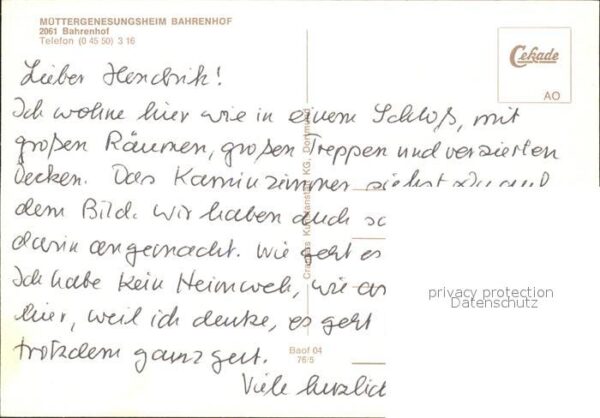 MÜTTERGENESUNGSHEIM BAHRENHOF
2061 Bahrenhof
Telefon (0 45 50) 3 16
Cekade
AO
Lieber Hendrik!
Ich wohne hier wie in einem Schloß, mit
großen Räumen, großen Treppen und verzierten
Decken. Das Kaminzimmer siehst du auf
dem Bild. Wir haben auch
darin angemacht. Wie geht es
Ich habe kein Heimweh, wie
hier, weil ich denke, es geht
trotzdem ganz gut.
Viele herzlich
Cramers Kunstanstalt KG, Dortmund
Baof 04
76/5
privacy protection
Datenschutz